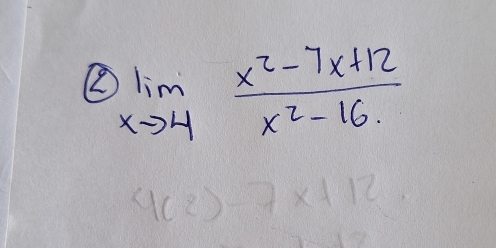 ② lim x²-7x+12
x→4 x²-16.
4(2)-7x+12